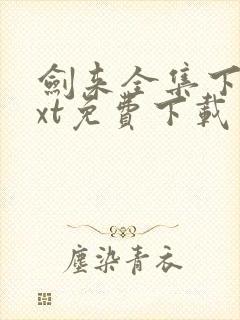 劍来全集下
xt免費下載
塵染青衣